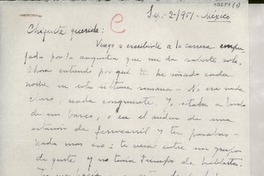 Sep. 2/951 - México
Chiquita querida:
Vengo a escribirte a la carrera empu
jada por la angustia que me da saberte sola.
Ahora entiendo por qué te he soñado cada
noche en esta última semana. No era nada
claro, nada congruente. Yo estaba a bordo
de un barco, o en el andén de una
estación de ferrocarril y tú pasabas.
Nada más eso: te veía entre un grupo
de gente y no tenía tiempo de hablarte.